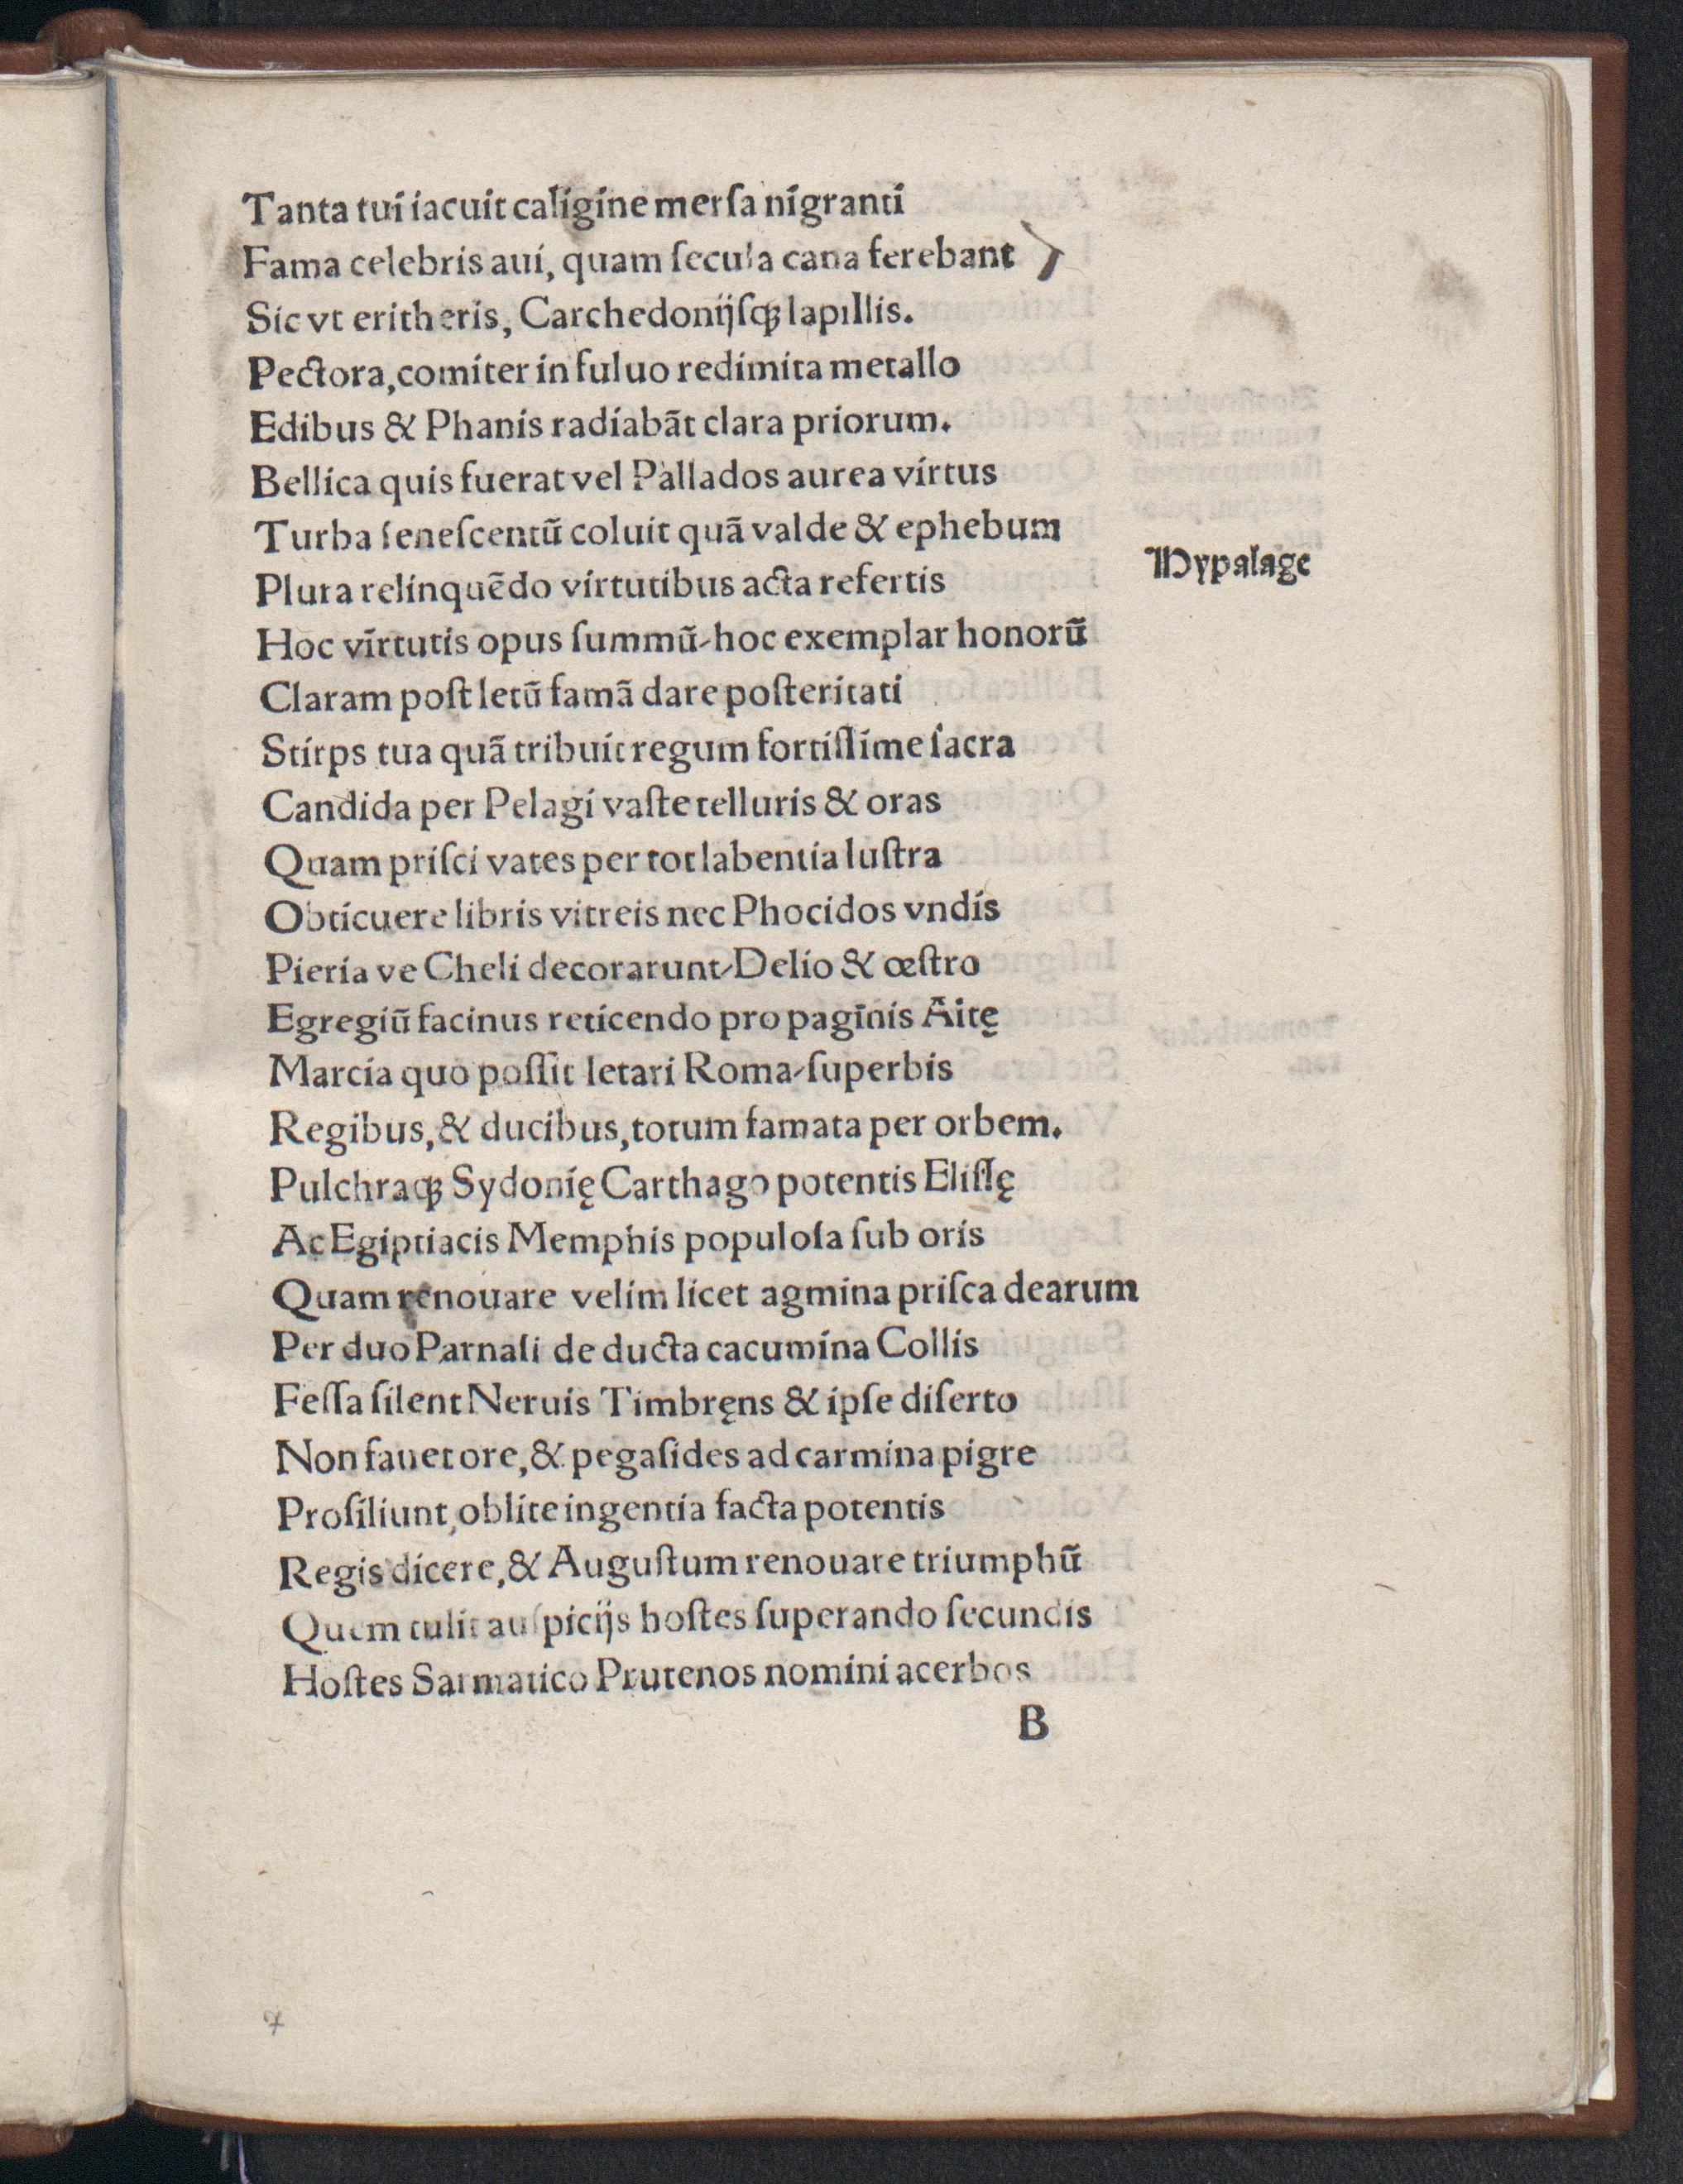 Tanta tui iacuit caligine merſa nigranti
Fama celebris aui, quam ſecula cana ferebant
Sic vt eritheris, Carchedonijſqꝫ lapillis.
Pectora, comiter in fuluo redimita metallo
Edibus & Phanis radiabāt clara priorum.
Bellica quis fuerat vel Pallados aurea virtus
Turba ſeneſcentū coluit quā valde & ephebum
Plura relinquēdo virtutibus acta refertis
Hypalage
Hoc virtutis opus ſummū-hoc exemplar honorū
Claram poſt letū famā dare poſteritati
Stirps tua quā tribuit regum fortiſſime ſacra
Candida per Pelagi vaſte telluris & oras
Quam priſci vates per tot labentia luſtra
Obticuere libris vitreis nec Phocidos vndis
Pieria ve Cheli decorarunt-Delio & œſtro
Egregiū facinus reticendo pro paginis Aitę
Marcia quo poſſit letari Roma-ſuperbis
Regibus, & ducibus, totum famata per orbem.
Pulchraqꝫ Sydonię Carthago potentis Eliſſę
Ac Egiptiacis Memphis populoſa ſub oris
Quam renouare velim licet agmina priſca dearum
Per duo Parnaſi de ducta cacumina Collis
Feſſa ſilent Neruis Timbręns & ipſe diſerto
Non fauet ore, & pegaſides ad carmina pigre
Proſiliunt, oblite ingentia facta potentis
Regis dicere, & Auguſtum renouare triumphū
Quem tulit auſpicijs hoſtes ſuperando ſecundis
Hoſtes Sarmatico Prutenos nomini acerbos
B